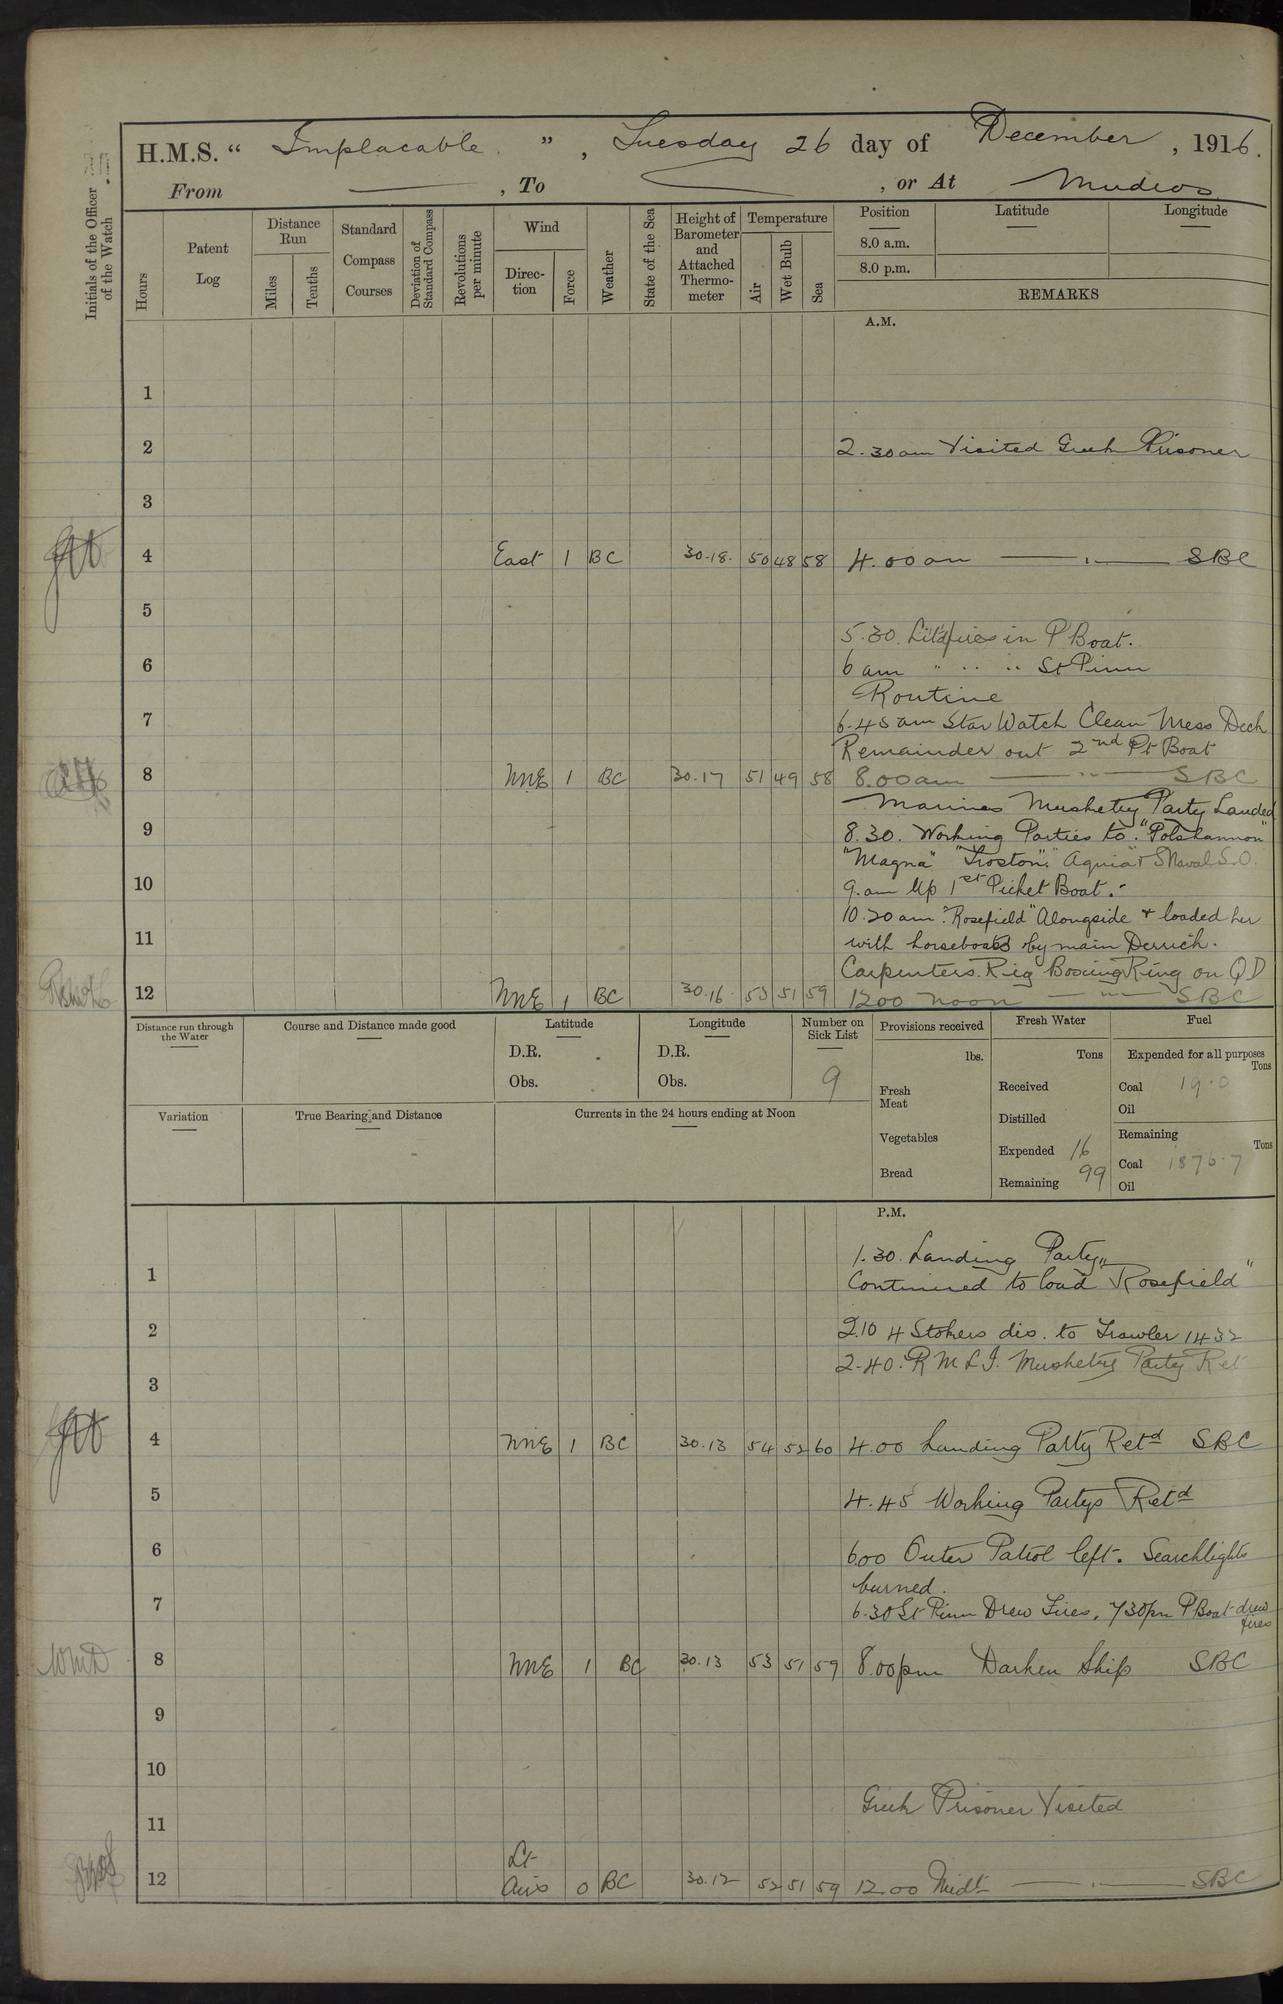 H.M.S. “ Implacable. ” , Tuesday 26 day of December , 1916.
From — , To — , or At Mudros
Initials of the Officer of the Watch
Hours
Patent Log
Distance Run
Miles
Tenths
Standard Compass Courses
Deviation of Standard Compass
Revolutions per minute
Wind
Direc-tion
Force
Weather
State of the Sea
Height of Barometer and Attached Thermo-meter
Temperature
Air
Wet Bulb
Sea
Position
Latitude
Longitude
8.0 a.m.
8.0 p.m.
REMARKS
A.M.
1
2 2.30 am Visited Greek Prisoner
3
4 East 1 BC 30.18. 50 48 58 4.00 am — " — SBC
5
5.30. Litd fires in P Boat.
6 6 am " " " St Pinn
Routine
7 6.45 am Star Watch Clean Mess Deck
Remainder out 2nd Pt Boat
8 NNE 1 BC 30.17 51 49 58 8.00 am — " — SBC
Marines Musketry Party Landed
9 8.30. Working Parties to "Polshannon"
"Magna" "Troston" "Aquia" + S Naval S.O.
10 9. am Up 1st Picket Boat.-
10.20 am. "Rosefield" Alongside + loaded her
11 with horseboats by main Derrick.
Carpenters Rig Boxing Ring on QD
12 NNE 1 BC 30.16 53 51 59 1200 noon — " — SBC
Distance run through the Water
Course and Distance made good
Latitude
D.R.
Obs.
Longitude
D.R.
Obs.
Number on Sick List
9
Provisions received
lbs.
Fresh Meat
Vegetables
Bread
Fresh Water
Tons
Received
Distilled
Expended 16
Remaining 99
Fuel
Expended for all purposes
Tons
Coal 19.0
Oil
Remaining
Tons
Coal 1876.7
Oil
Variation
True Bearing and Distance
Currents in the 24 hours ending at Noon
P.M.
1.30. Landing Party
1 Continued to load "Rosefield"
2 2.10 4 Stokers dis. to Trawler 1432
2.40. R M L I. Musketry Party Ret
3
4 NNE 1 BC 30.13 54 52 60 4.00 Landing Party Retd SBC
5 4.45 Working Partys Retd
6 600 Outer Patrol left. Searchlights
burned.
7 6.30 St Pinn Drew Fires, 730pm P Boat drew
fires
WMD 8 NNE 1 BC 30.13 53 51 59 8.00pm Darken Ship SBC
9
10
Greek Prisoner Visited
11
Lt
12 Airs 0 BC 30.12 52 51 59 12.00 Midt — " — SBC